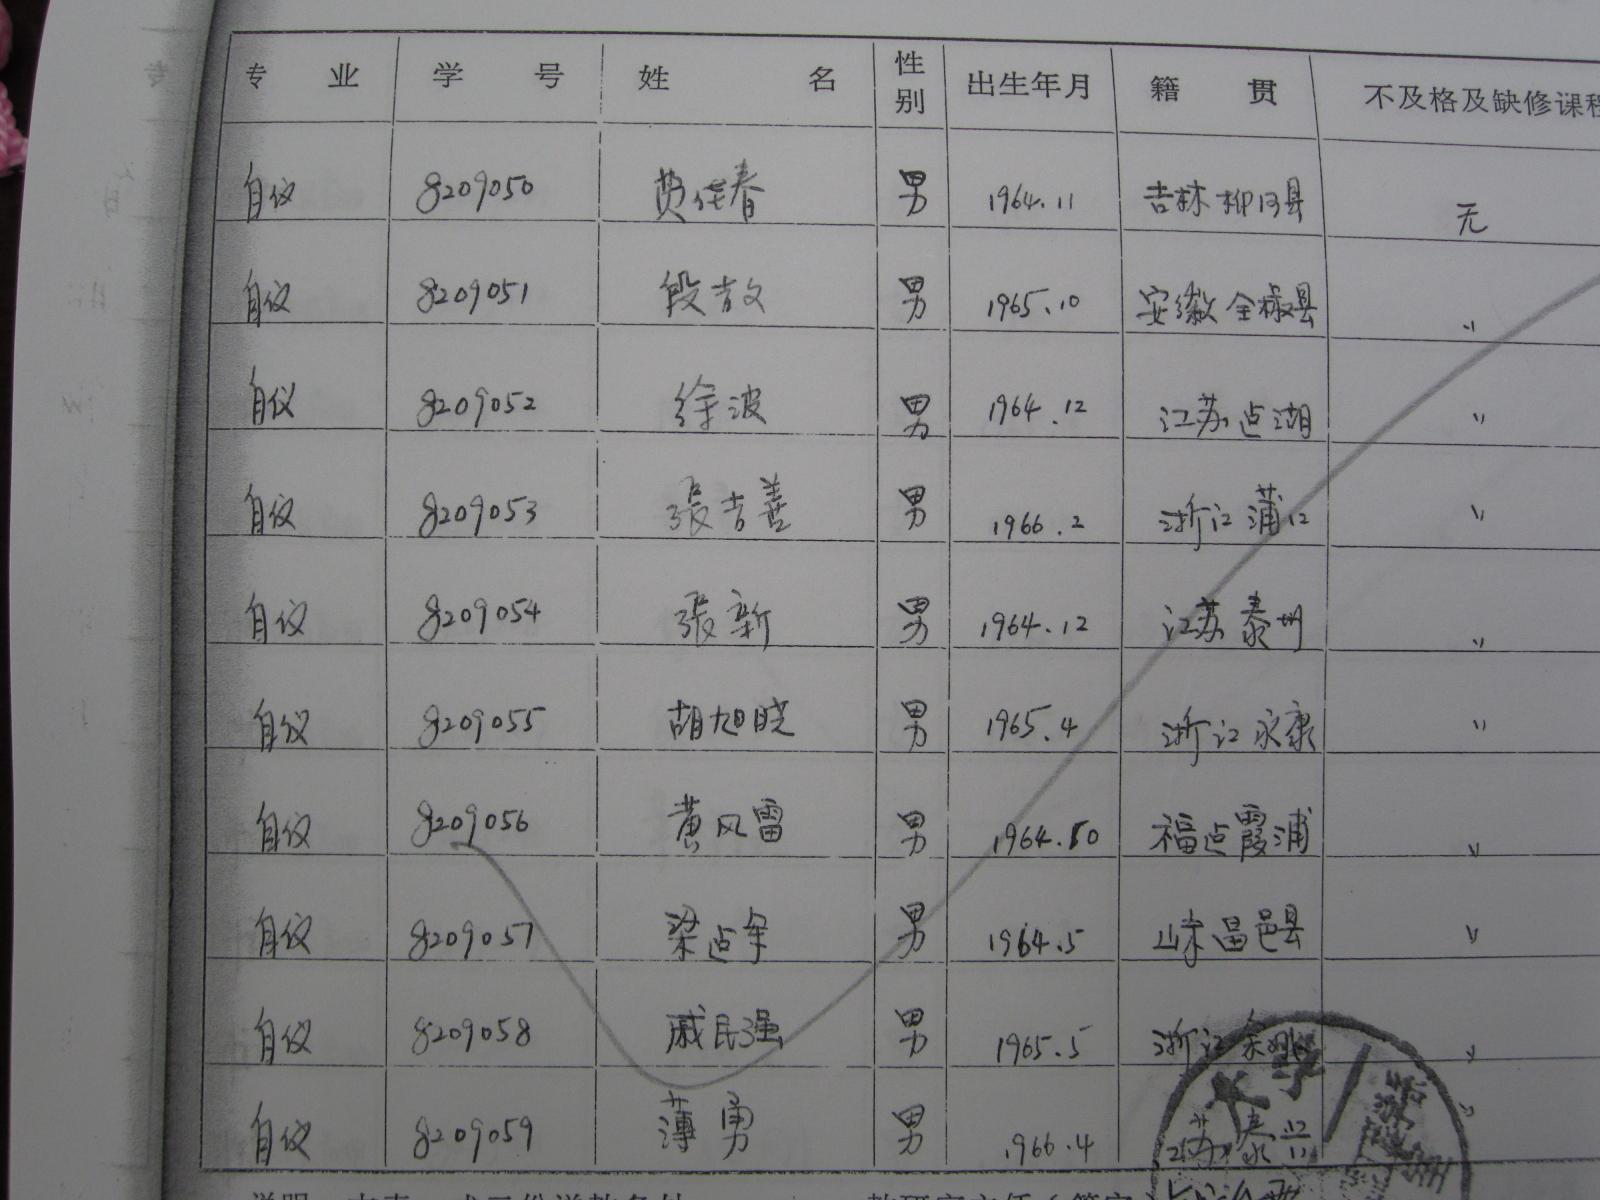 专 业 学 号 姓 名 性别 出生年月 籍 贯 不及格及缺修课程
自仪 8209050 费佳春 男 1964.11 吉林柳河县 无
自仪 8209051 段吉文 男 1965.10 安徽全椒县 〃
自仪 8209052 徐波 男 1964.12 江苏 湖 〃
自仪 8209053 張吉善 男 1966.2 浙江蒲江 〃
自仪 8209054 張新 男 1964.12 江苏泰州 〃
自仪 8209055 胡旭晓 男 1965.4 浙江永康 〃
自仪 8209056 黄风雷 男 1964.10 福建霞浦 〃
自仪 8209057 梁占军 男 1964.5 山东昌邑县 〃
自仪 8209058 戚民强 男 1965.5 浙江余姚 〃
自仪 8209059 薄勇 男 1966.4 江苏泰 〃
大学